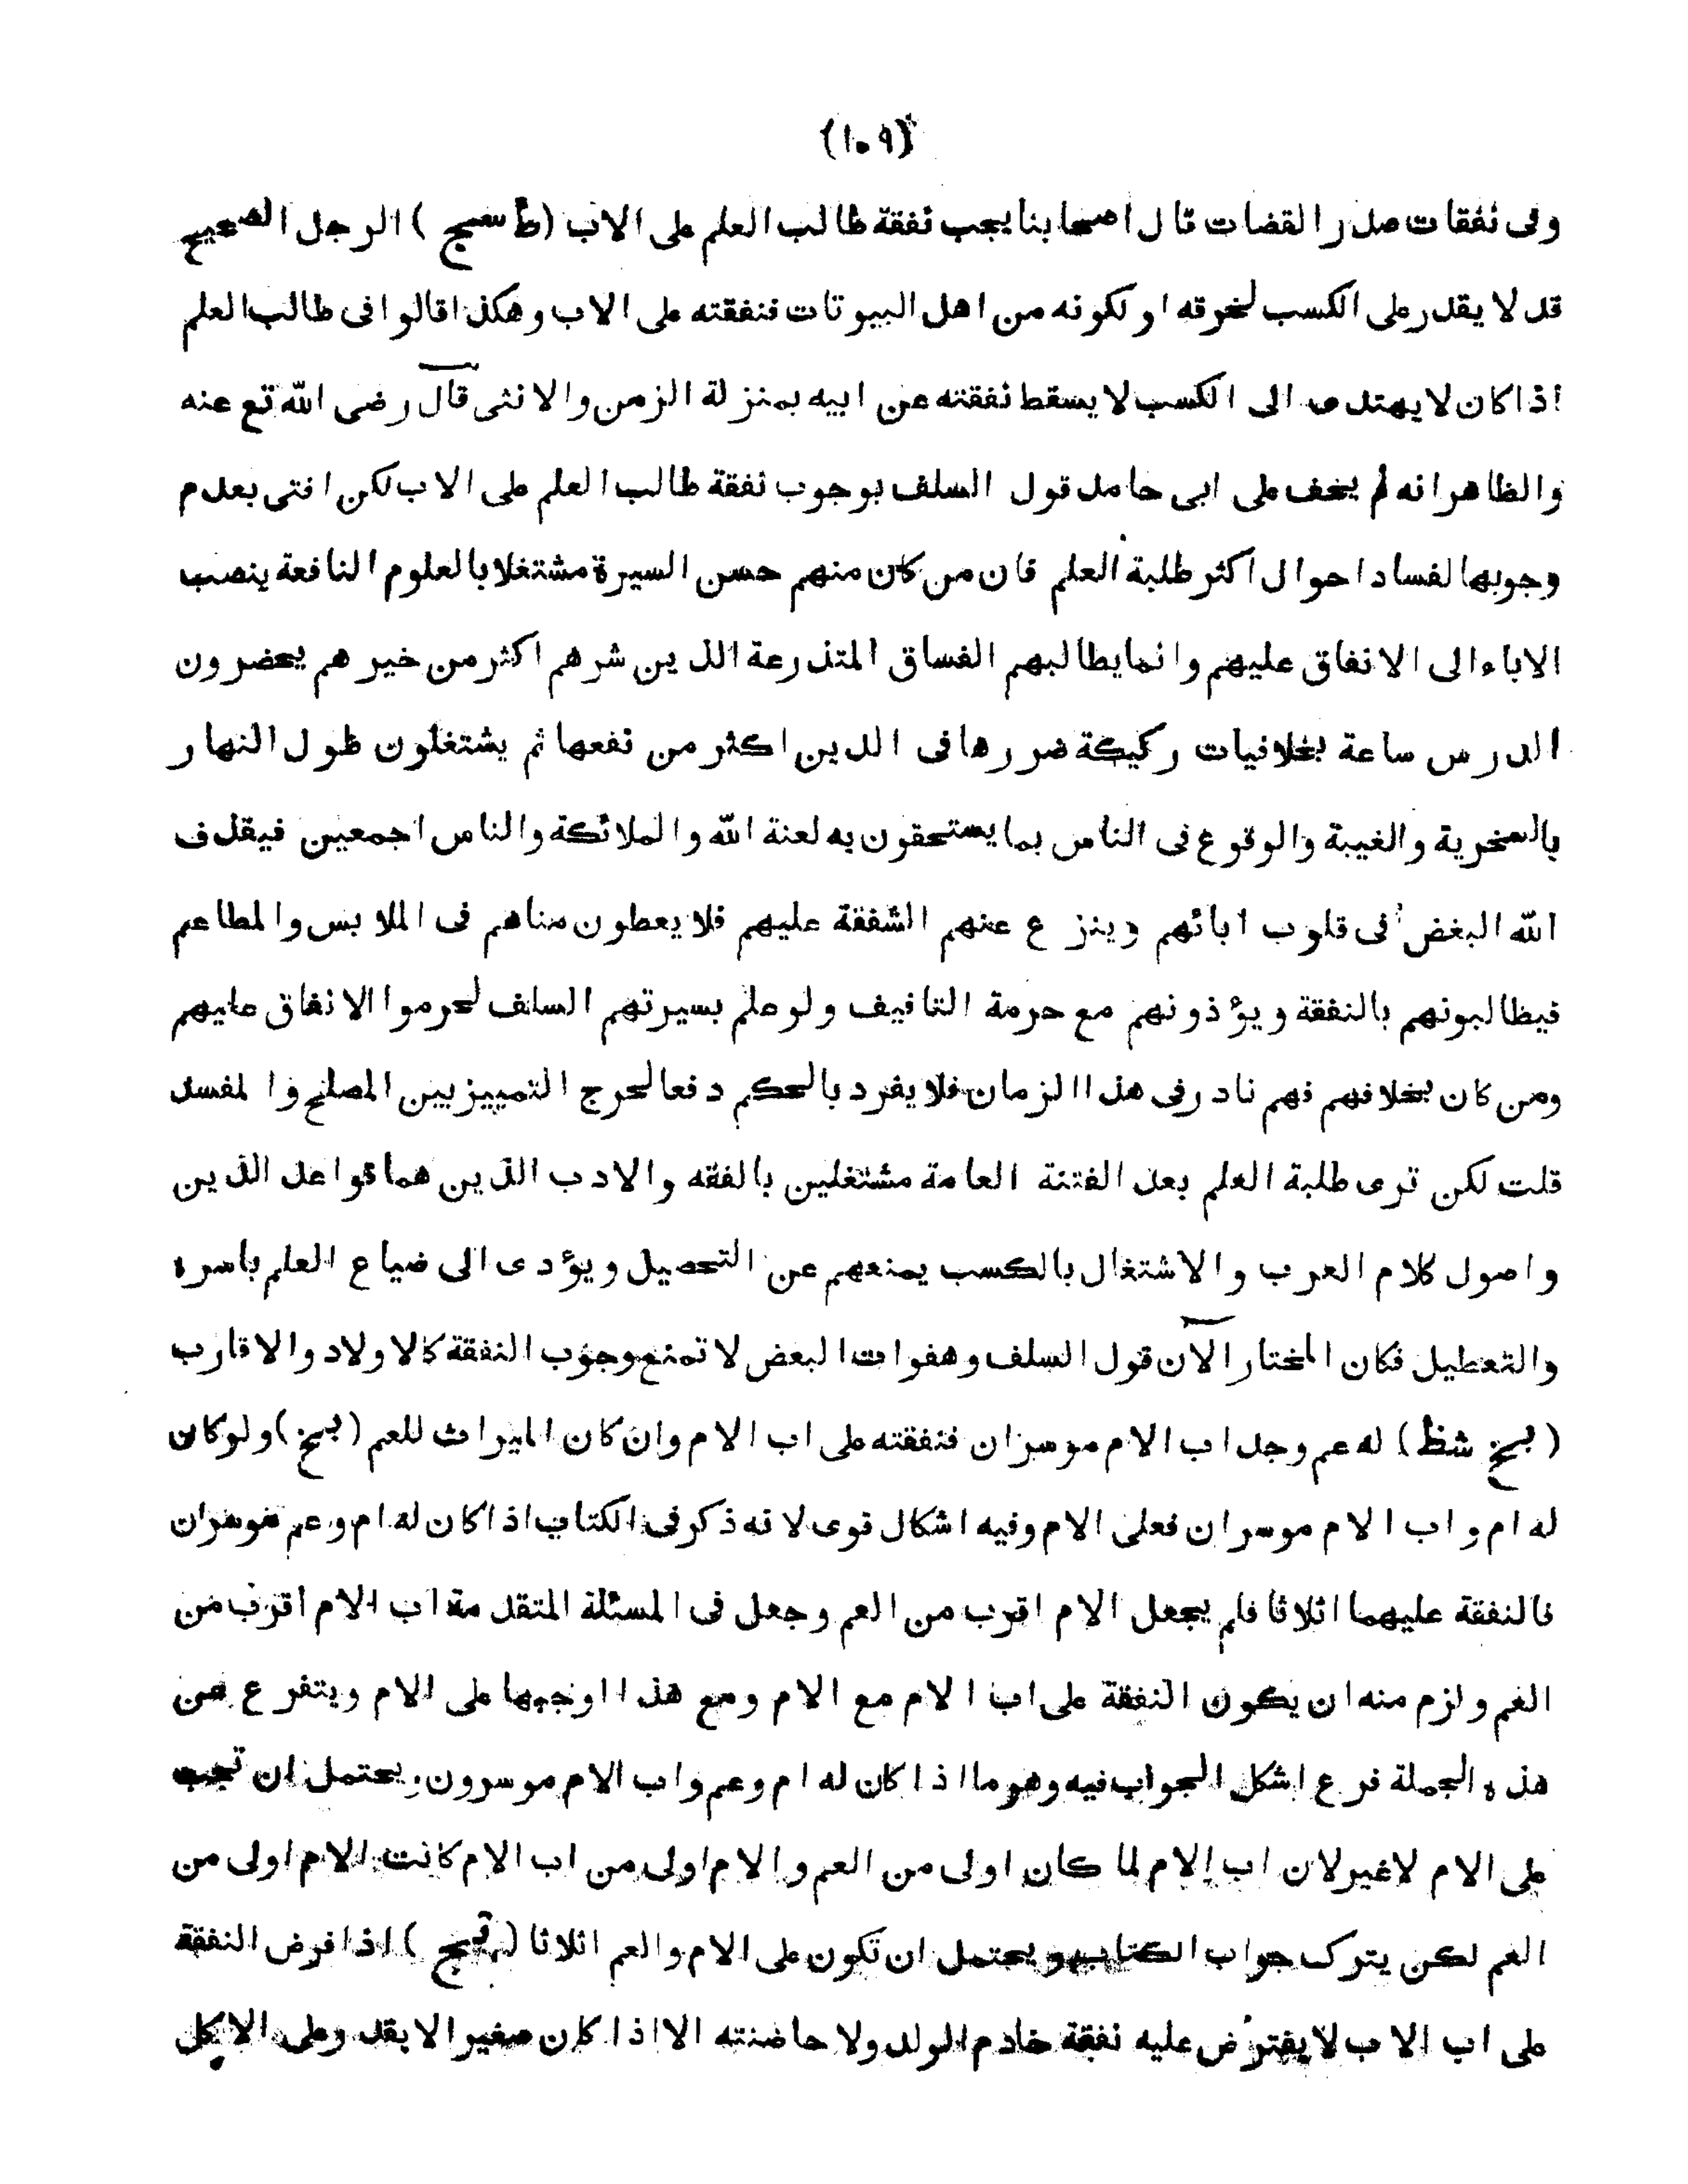 (١٠٩)
وفى نفقات صدر القضات قال اصحابنا يجب نفقة طالب العلم على الاب (ط سمج) الرجل الصحيح
قد لا يقدر على الكسب لخرقه او لكونه من اهل البيوتات فنفقته على الاب وهكذا قالوا فى طالب العلم
اذا كان لا يهتدى الى الكسب لا يسقط نفقته عن ابيه بمنزلة الزمن والانثى قال رضى الله تع عنه
والظاهر انه لم يخف على ابى حامد قول السلف بوجوب نفقة طالب العلم على الاب لكن افتى بعدم
وجوبها لفساد احوال اكثر طلبة العلم فان من كان منهم حسن السيرة مشتغلا بالعلوم النافعة ينصب
الاباء الى الانفاق عليهم وانما يطالبهم الفساق المتذرعة الذين شرهم اكثر من خيرهم يحضرون
الدرس ساعة بخلافيات ركيكة ضررها فى الدين اكثر من نفعها ثم يشتغلون طول النهار
بالسخرية والغيبة والوقوع فى الناس بما يستحقون به لعنة الله والملائكة والناس اجمعين فيقذف
الله البغض فى قلوب ابائهم وينزع عنهم الشفقة عليهم فلا يعطون مناهم فى الملابس والمطاعم
فيطالبونهم بالنفقة ويؤذونهم مع حرمة التافيف ولو علم بسيرتهم السلف لحرموا الانفاق عليهم
ومن كان بخلافهم فهم نادر فى هذا الزمان فلا يفرد بالحكم دفعا لحرج التمييز بين المصلح والمفسد
قلت لكن ترى طلبة العلم بعد الفتنة العامة مشتغلين بالفقه والادب الذين هما قواعد الدين
واصول كلام العرب والاشتغال بالكسب يمنعهم عن التحصيل ويؤدى الى ضياع العلم باسره
والتعطيل فكان المختار الآن قول السلف وهفوات البعض لا تمنع وجوب النفقة كالاولاد والاقارب
(بخ شظ) له عم وجد اب الام موسران فنفقته على اب الام وان كان الميراث للعم (بخ) ولو كان
له ام و اب الام موسران فعلى الام وفيه اشكال قوى لانه ذكر فى الكتاب اذا كان له ام وعم موسران
فالنفقة عليهما اثلاثا فلم يجعل الام اقرب من العم وجعل فى المسئلة المتقدمة اب الام اقرب من
العم ولزم منه ان يكون النفقة على اب الام مع الام ومع هذا اوجبها على الام ويتفرع من
هذه الجملة فرع اشكل الجواب فيه وهو ما اذا كان له ام وعم واب الام موسرون يحتمل ان تجب
على الام لاغير لان اب الام لما كان اولى من العم والام اولى من اب الام كانت الام اولى من
العم لكن يترك جواب الكتاب ويحتمل ان تكون على الام والعم اثلاثا ( ) اذا فرض النفقة
على اب الاب لا يفترض عليه نفقة خادم الولد ولا حاضنته الا اذا كان صغيرا لا يقدر على الاكل